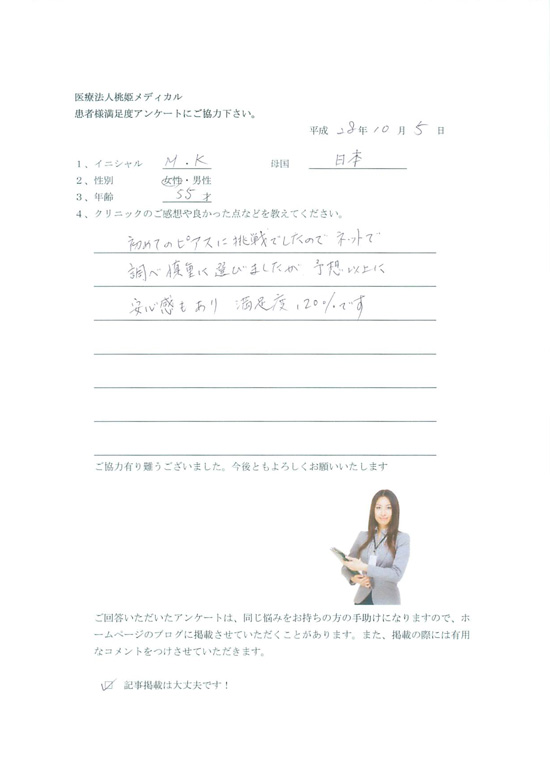 医療法人桃姫メディカル
患者様満足度アンケートにご協力下さい。
平成 28年 10 月 5 日
1、イニシャル M.K 母国 日本
2、性別 女性・男性
3、年齢 55才
4、クリニックのご感想や良かった点などを教えてください。
初めてのピアスに挑戦でしたので ネットで
調べ慎重に選びましたが 予想以上に
安心感もあり 満足度120%です
ご協力有り難うございました。今後ともよろしくお願いいたします
ご回答いただいたアンケートは、同じ悩みをお持ちの方の手助けになりますので、ホ
ームページのブログに掲載させていただくことがあります。また、掲載の際には有用
なコメントをつけさせていただきます。
☑ 記事掲載は大丈夫です！